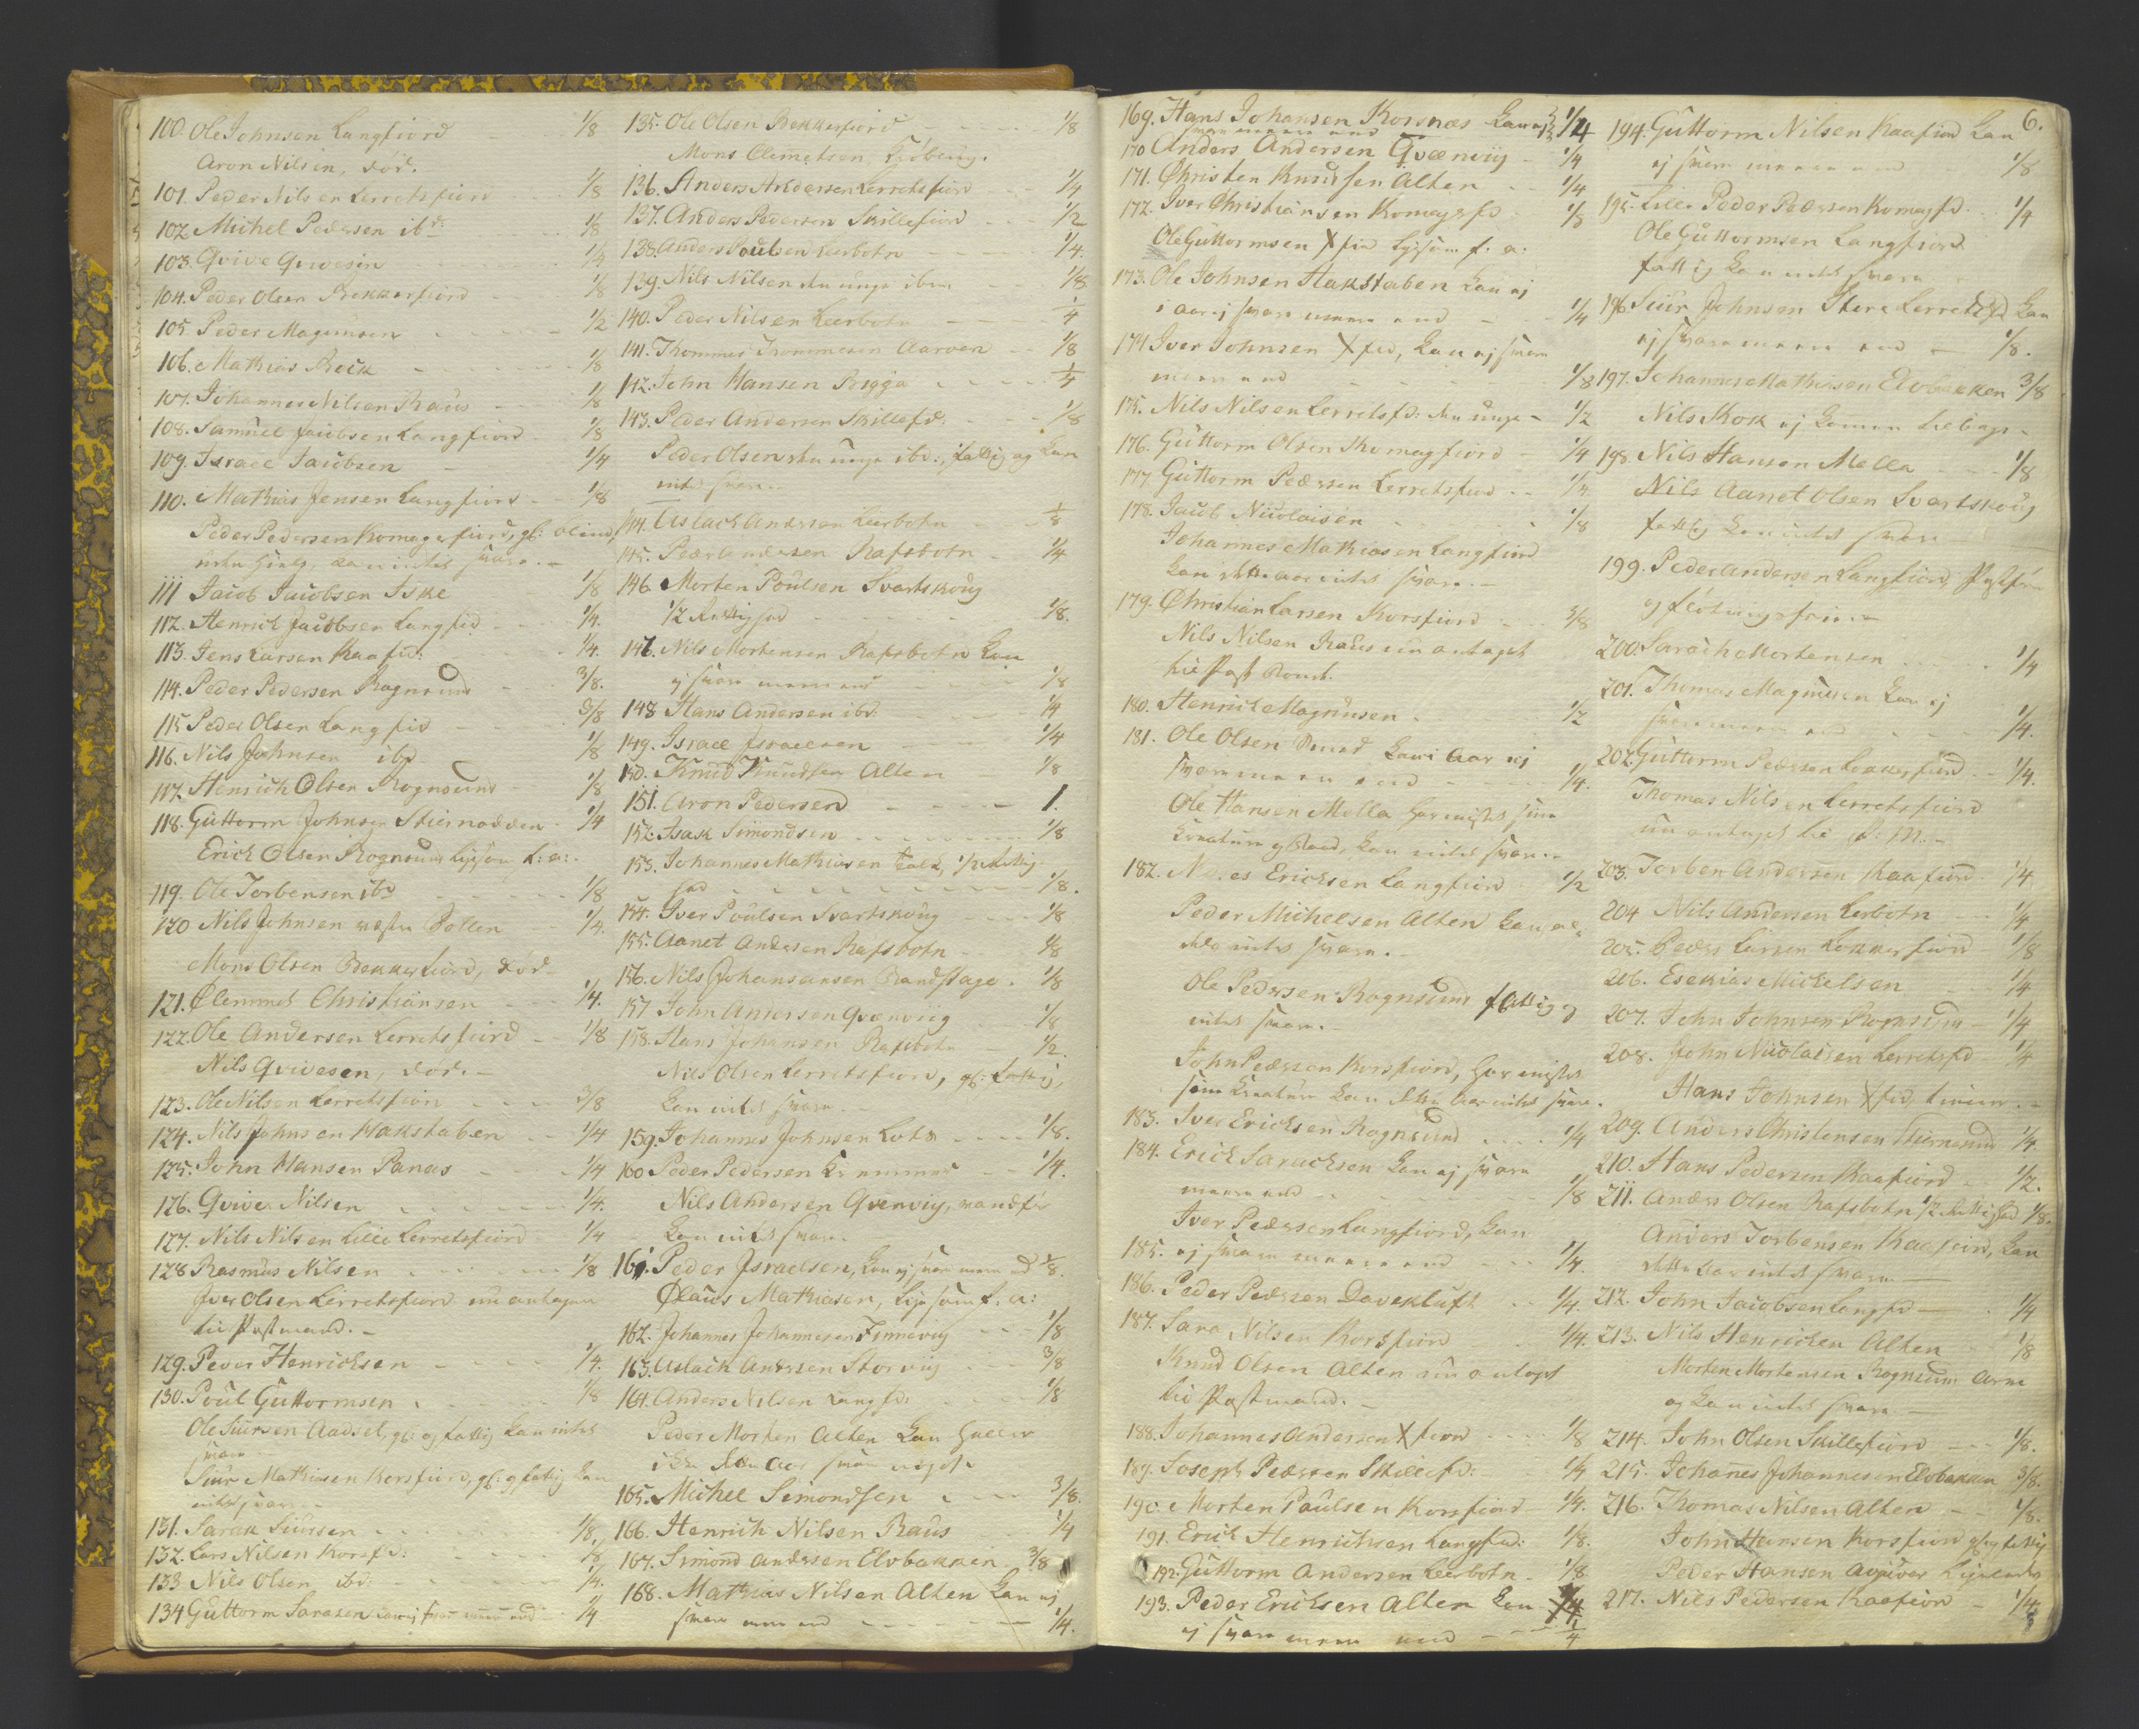 100. Ole Johnsen Langfiord - - 1/8
Aron Nilsen, død.
101. Peder Nilsen Lerretsfiord 1/8
102 Michel Pedersen ibd: 1/8
103. Qvive Qvivesen 1/4
104. Peder Olsen Bekkerfiord - 1/8
105 Peder Magnusen - 1/2
106. Mathias Beck - - - 1/8
107. Johannes Nilsen Raus - 1/8
108. Samuel Jacobsen Langfiord 1/8
109. Israel Jacobsen - 1/4
110. Mathias Jensen Langfiord - - 1/8
Peder Pedersen Komagerfiord, gl: blind,
uden hielp, kan intet svare. -
111 Jacob Jacobsen Iske 1/8
112. Henrich Jacobsen Langfid - - 1/4.
113. Jens Larsen Kaafid: 1/4.
114. Peder Pedersen Rognsund - 3/8.
115 Peder Olsen Langfid - 3/8
116. Nils Johnsen ibd 1/8
117. Henrich Olsen Rognsund - 1/8
118. Guttorm Johnsen Stiernødden - 1/4
Erich Olsen Rognsund ligesom f: a:.
119. Ole Torbensen ibd - - - 1/8
120 Nils Johnsen vestre Bollen - 1/4.
Mons Olsen Bekkerfiord, død -
121. Clemmet Christiansen - - 1/4.
122. Ole Andersen Lerretsfiord - 1/8
Nils Qvivesen, død. -
123. Ole Nilsen Lerretsfiord - - - 3/8
124. Nils Johnsen Hakstaben - - 1/4
125. John Hansen Panas - - - 1/4
126. Qvive Nilsen - - - - - 1/4.
127. Nils Nilsen Lille Lerretsfiord - 1/4
128 Rasmus Nilsen - - - - 1/8
Iver Olsen Lerretsfiord nu antagen
til Postmand. -
129. Peder Henrichsen - - - - 1/4.
130. Poul Guttormsen - - - 1/8
Ole Siursen Aadsel, gl: og fattig kan intet
svare
Siur Mathiasen Korsfiord, gl: og fattig kan
intet svare -
131. Sarak Siursen - - - - 1/8
132. Lars Nilsen Korsfd: - - - 1/8
133 Nils Olsen ibd: - - - - 1/4.
134 Guttorm Sarasen kan ej svare meere end - 1/4
135. Ole Olsen Bekkerfiord - - - - 1/8
Mons Clemetsen,
136. Anders Andersen Lerretsfiord - - - 1/4
137. Anders Pedersen Skillefiord - - - 1/2
138. Anders Poulsen Leerbotn - - - 1/4.
139. Nils Nilsen den unge ibm - - 1/8
140. Peder Nilsen Leerbotn - - - 1/4
141. Thommes Thommesen Aarøen - - 1/8
142. John Hansen Brygga - - - - 1/4
143. Peder Andersen Skillefd: - - - 1/8
Peder Olsen den unge ibd:, fattig og kan
intet svare. -
144. Aslach Andersen Leerbotn - - - 1/8
145. Peder Andersen Rafsbotn - 1/4
146. Morten Poulsen Svartskoug
1/2 - - - - 1/8.
147. Nils Mortensen Rafsbotn kan
ej svare meere end - - - - 1/8
148 Hans Andersen ibd: - - 1/4
149. Israel Israelsen - - - 1/4
150. Knud Knudsen Alten - 1/8
151. Aron Pedersen - - - - 1.
152. Isak Simondsen - - - - - 1/8
153. Johannes Mathiasen 1/2
- - - - - - - 1/8.
154. Iver Poulsen Svartskoug - - - 1/8
155. Aanet Andersen Rafsbotn - - 1/8
156. Nils Johansansen Brandstage. 1/8
157 John Andersen Qvænviig - 1/8
158. Hans Johansen Rafsbotn - 1/2.
Nils Olsen Lerretsfiord, gl: fattig,
kan intet svare.
159. Johannes Johnsen Lots - - - - 1/8.
160 Peder Pedersen - - 1/4.
Nils Andersen Qvenviig,
kan intet svare.
161. Peder Israelsen, kan ej svare meere end 1/8.
Olaus Mathiasen, ligesom f. a:
162. Johannes Johannesen Finnevig - - - 1/8
163. Aslach Andersen Storviig - - - 3/8
164. Anders Nilsen Langfd: - - 1/8
Peder Morten Alten kan heller
icke dette Aar svare noget.
165. Michel Simondsen - - - - 3/8.
166. Henrich Nilsen Raus - 1/4
167. Simond Andersen Elvbakken - 3/8
168. Mathias Nilsen Alten kan ej
svare mere end - - - - - 1/4.
169. Hans Johansen Korsnæs kan ej 1/4
svare meere end
170 Anders Andersen Qvænviig - 1/4
171. Christen Knudsen Alten - - 1/4
172. Iver Christiansen Komagfd: 1/8
Ole Guttormsen Xfid ligesom f. a.
173. Ole Johnsen Hakstaben kan ej
i Aar ej svare meere end - - 1/4
174 Iver Johnsen Xfid, kan ej svare
meere end - - - - 1/8
175. Nils Nilsen Lerretsfd: den unge - 1/2
176. Guttorm Olsen Komagfiord - 1/4
177. Guttorm Pedersen Lerretsfiord - - 1/4.
178. Jacob Nicolaisen - - - 1/8
Johannes Mathiasen Langfiord
kan dette Aar intet svare. -
179. Christian Larsen Korsfiord - - - 3/8
Nils Nilsen Raus nu antaget
til Post Bond.
180. Henrich Magnusen - 1/2
181. Ole Olsen kan i Aar ej
svare meere end - - - 1/4.
Ole Hansen Mella har mistet sine
Kreature kan intet svare. -
182. Erichsen Langfiord - 1/2
Peder Michelsen Alten kan al-
deles intet svare. -
Ole Pedersen Rognsund fattig og
intet svare. -
John Pedersen Korsfiord, har mistet
sine Kreature kan dette Aar intet svare.
183. Iver Erichsen Rognsund - - - - 1/4
184. Erich Sarachsen kan ej svare
meere end - - - - - 1/8
Iver Pedersen Langfiord, kan
185. ej svare meere end - - - 1/4.
186. Peder Pedersen Davekluft - - 1/4.
187. Sara Nilsen Korsfiord 1/4.
Knud Olsen Alten nu antaget
til Postmand. -
188. Johannes Andersen Xfiord - - - 1/8
189. Joseph Pedersen Skillefd: - 1/4
190. Morten Paulsen Korsfiord - 1/4.
191. Erich Henrichsen Langfid: 1/8.
192. Guttorm Andersen Leerbotn - 1/8
193. Peder Erichsen Alten kan
ej svare meere end - - - 1/4
6.
194. Guttorm Nilsen Kaafiord kan
ej svare meere end - 1/8
195. Lille Peder Pedersen Komagfd. - - 1/4
Ole Guttormsen Langfiord
fattig kan intet svare
196. Siur Johnsen Store Lerretsfd kan
ej svare meere end - 1/8.
197. Johannes Mathisen Elvbakken 3/8
Nils Kok ej
198. Nils Hansen Mella - - - 1/8
Nils Aanet Olsen Svartskoug
fattig kan intet svare
199. Peder Andersen Langfiord,
og
200. Sarach Mortensen - - - - 1/4
201. Thomas Magnusen kan ej
svare meere end - - - - 1/4.
202. Guttorm Pedersen Lokkerfiord - - 1/4.
Thomas Nilsen Lerretsfiord
nu antaget til P: M. -
203. Torben Andersen Kaafiord. 1/4.
204 Nils Andersen Lerbotn - - 1/4
205. Peder Larsen Lokkerfiord 1/8
206. Esekias Michelsen - 1/4
207. John Johnsen Rognsund - 1/4
208. John Nicolaisen Lerretsfd - 1/4
Hans Johnsen Xfid, -
209. Anders Christensen Stiernsund 1/4.
210. Hans Pedersen Kaafiord - - 1/2.
211. Anders Olsen Rafsbotn 1/2 1/8.
Anders Torbensen Kaafiord, kan
dette Aar intet svare -
212. John Jacobsen Langfd - . 1/4
213. Nils Henrichsen Alten - 1/8
Morten Mortensen Rognsund arm
og kan intet svare -
214. John Olsen Skillefiord - - - 1/8.
215. Johannes Johannesen Elvbakken 3/8.
216. Thomas Nilsen Alten - - 1/8.
John Hansen Korsfiord gl. og fattig
Peder Hansen
217. Nils Pedersen Kaafiord - 1/4.